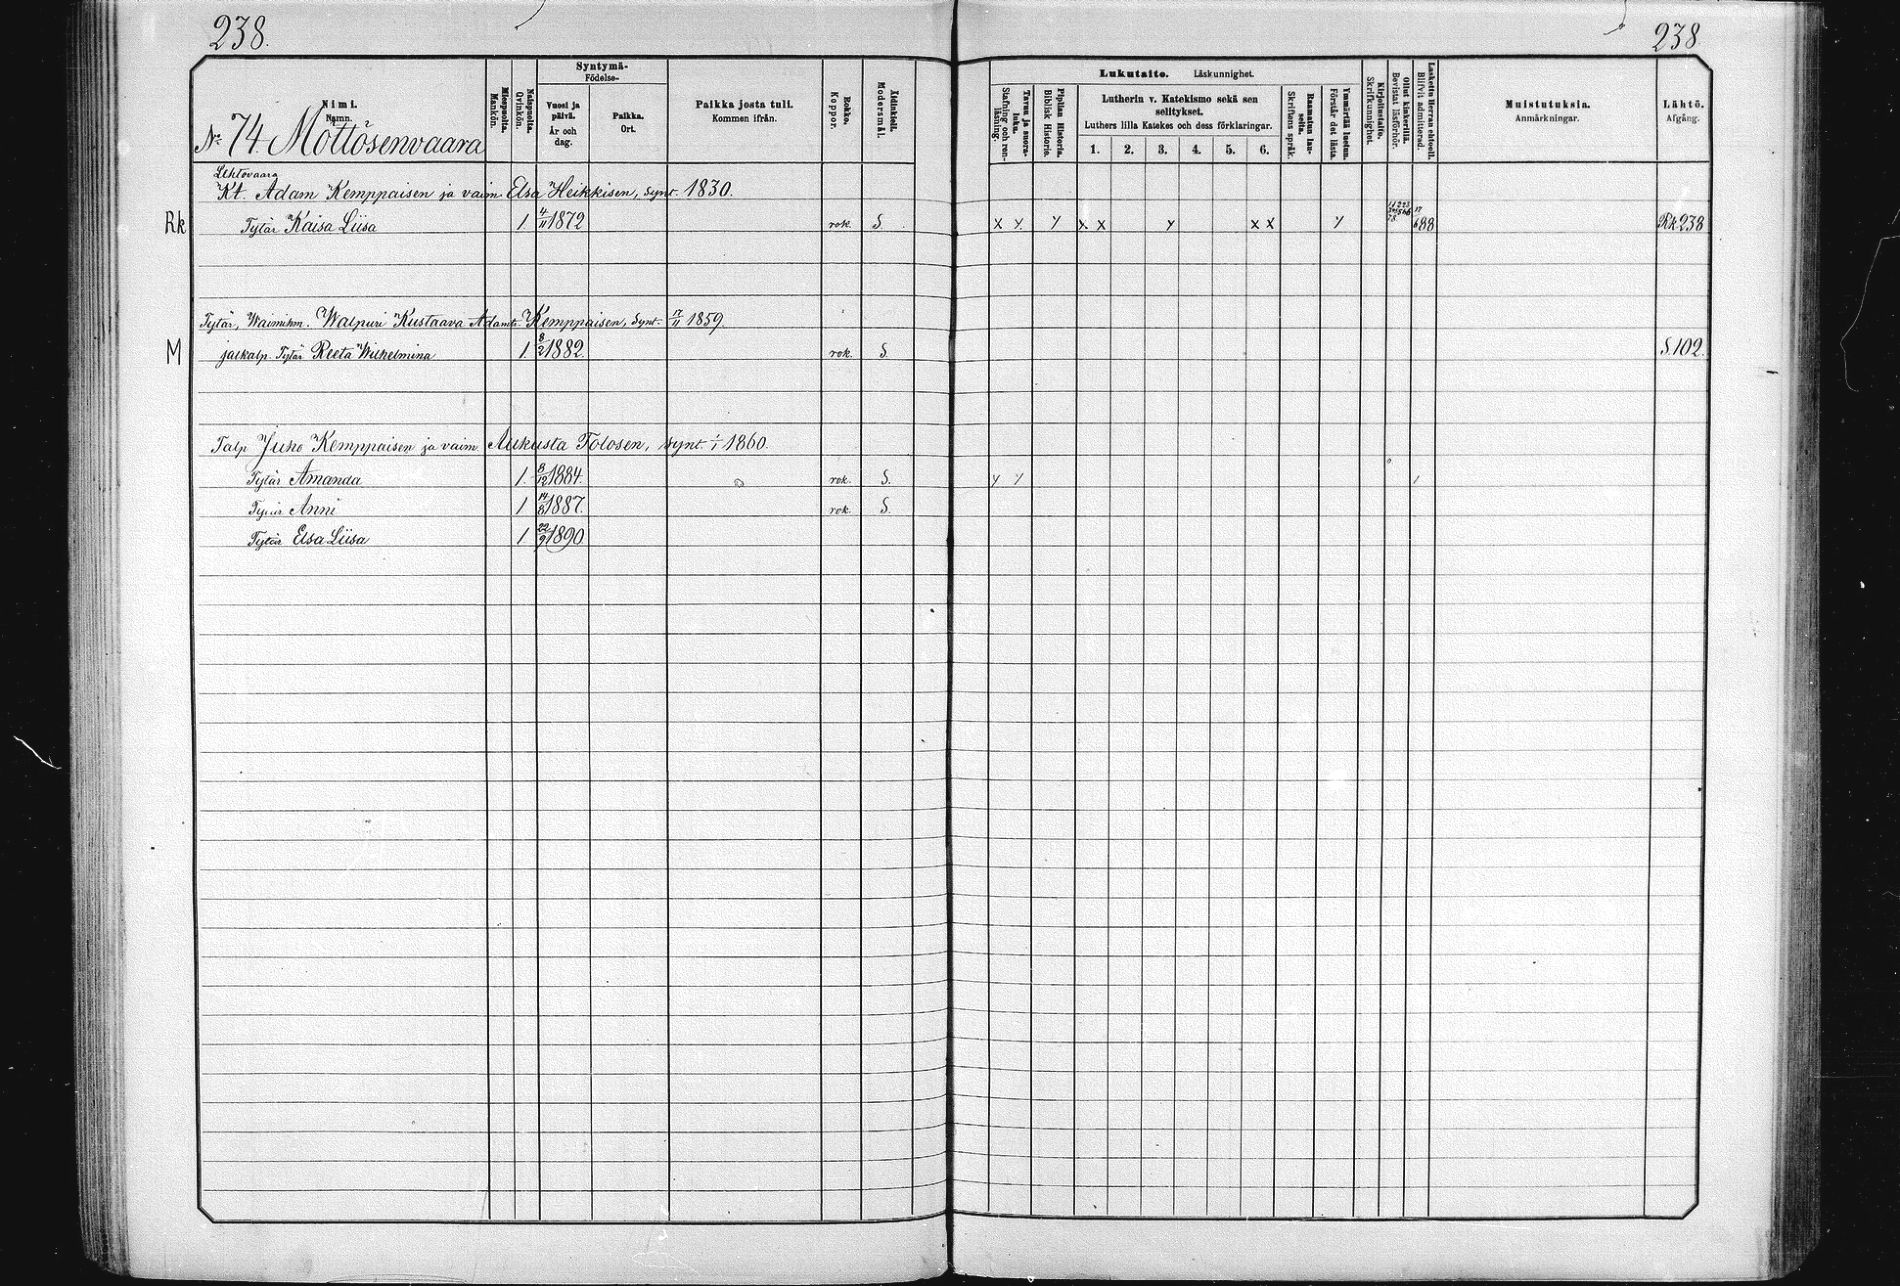 238.
238
Nimi.
Namn.
Miespuolia.
Mankön.
Naispuolia.
Qvinkön.
Syntymä-
Födelse-
Vuosi ja päivä.
År och dag.
Paikka.
Ort.
Paikka josta tuli.
Kommen ifrån.
Rokko.
Koppor.
Äidinkieli.
Modersmål.
Lukutaito. Läskunnighet.
Tavuu ja suora- luku.
Stafning och ren- läsning.
Piplian Historia.
Biblisk Historie.
Lutherin v. Katekismo sekä sen selitykset.
Luthers lilla Katekes och dess förklaringar.
1. 2. 3. 4. 5. 6.
Raamatun lau- seita.
Skriftens språk.
Ymmärtää luetun.
Förstår det lästa.
Kirjoitustaito.
Skrifkunnighet.
Ollut kinkerillä.
Bevistat läsförhör.
Laskettu Herran ehtoolI.
Blifvit admitterad.
Muistutuksia.
Anmärkningar.
Lähtö.
Afgång.
No 74. Mottösenvaara
Lehtovaara
Kt. Adam Kemppaisen ja vaim. Elsa Heikkisen, synt. 1830.
Rk Tytär Kaisa Liisa 1 4/11 1872 rok. S. x x y x x y x x y 88 Rk 238
Tytär, Waimihm. Walpuri Kustaava Adamt. Kemppaisen, synt. 17/11 1859.
M jalkalp. Tytär Reeta Wilhelmina 1. 8/2 1882. rok. S. S. 102.
Talp Juho Kemppaisen ja vaim Aukusta Tolosen, synt. 1/1 1860.
Tytär Amanda 1. 8/12 1884. rok. S. y y
Tytär Anni 1 14/8 1887. rok. S.
Tytär Elsa Liisa 1 22/9 1890